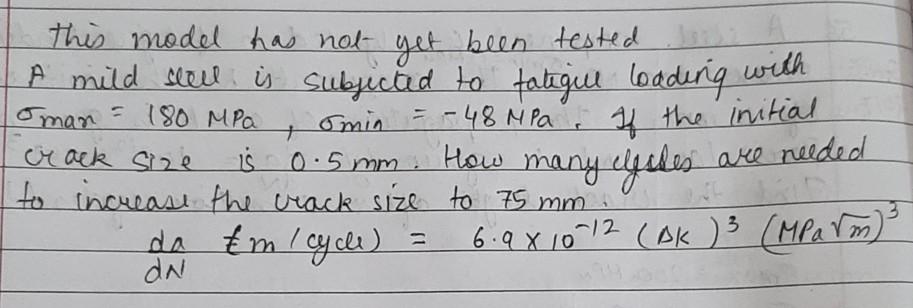 This model has not yet been tested
A mild steel is subjected to fatigue loading with
σmax = 180 MPa, σmin = -48 MPa. If the initial
crack size is 0.5 mm. How many cycles are needed
to increase the crack size to 75 mm
da/dN (m/cycle) = 6.9 × 10^-12 (ΔK)^3 (MPa√m)^3